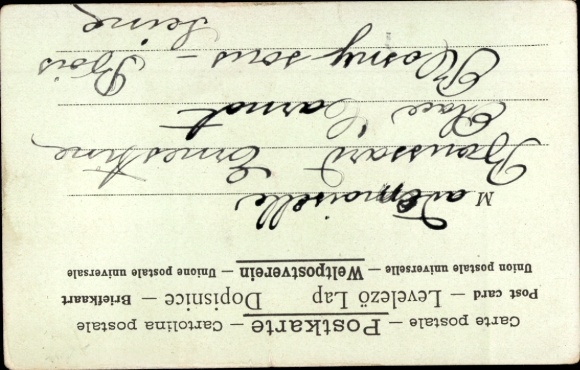 Carte postale — Postkarte — Cartolina postale
Post card — Levelező Lap Dopisnice — Briefkaart
Union postale universelle — Weltpostverein — Unione postale universale
Mademoiselle
Broussard Ernestine
Place Carnot
Rosny sous - Bois
Seine